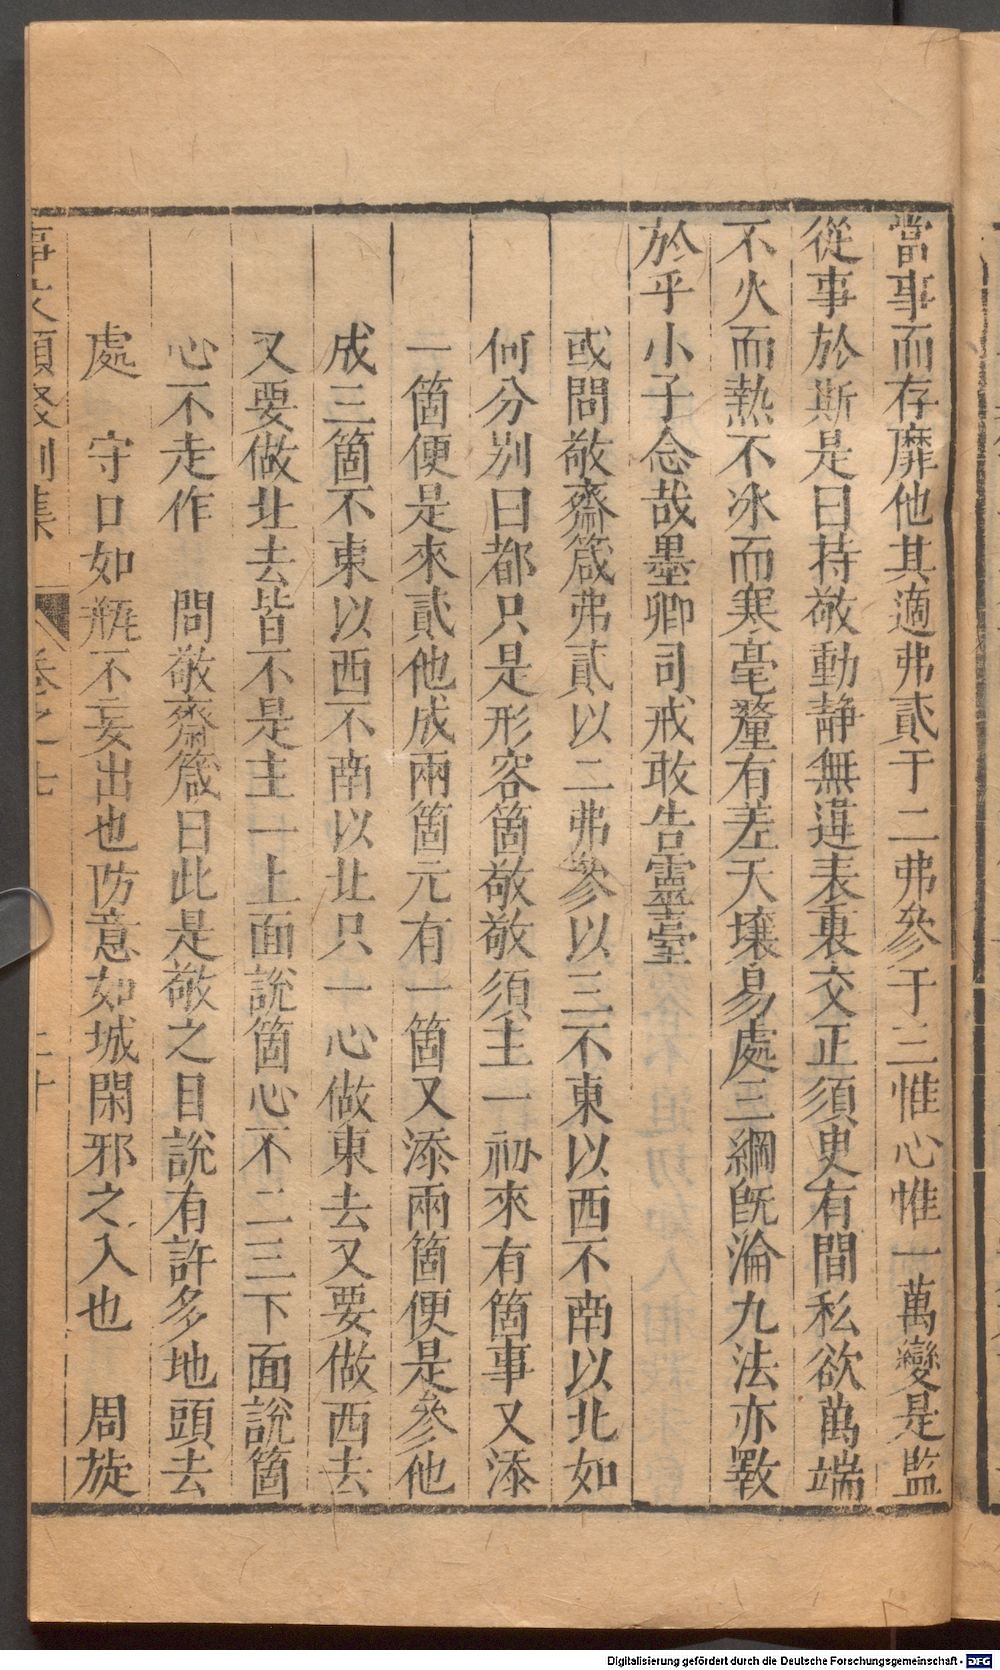 當事而存靡他其適弗貳于二弗參于三惟心惟一萬變是監
從事於斯是曰持敬動靜無違表裏交正須臾有間私欲萬端
不火而熱不冰而寒毫釐有差天壤易處三綱旣淪九法亦斁
於乎小子念哉墨卿司戒敢告靈臺
或問敬齋箴弗貳以二弗參以三不東以西不南以北如
何分别曰都只是形容箇敬敬須主一初來有箇事又添
一箇便是來貳他成兩箇元有一箇又添兩箇便是參他
成三箇不東以西不南以北只一心做東去又要做西去
又要做北去皆不是主一上面說箇心不二三下面說箇
心不走作　問敬齋箴曰此是敬之目說有許多地頭去
處　守口如瓶不妄出也防意如城閑邪之入也　周旋
事文類聚别集　卷之十七　二十
Digitalisierung gefördert durch die Deutsche Forschungsgemeinschaft - DFG